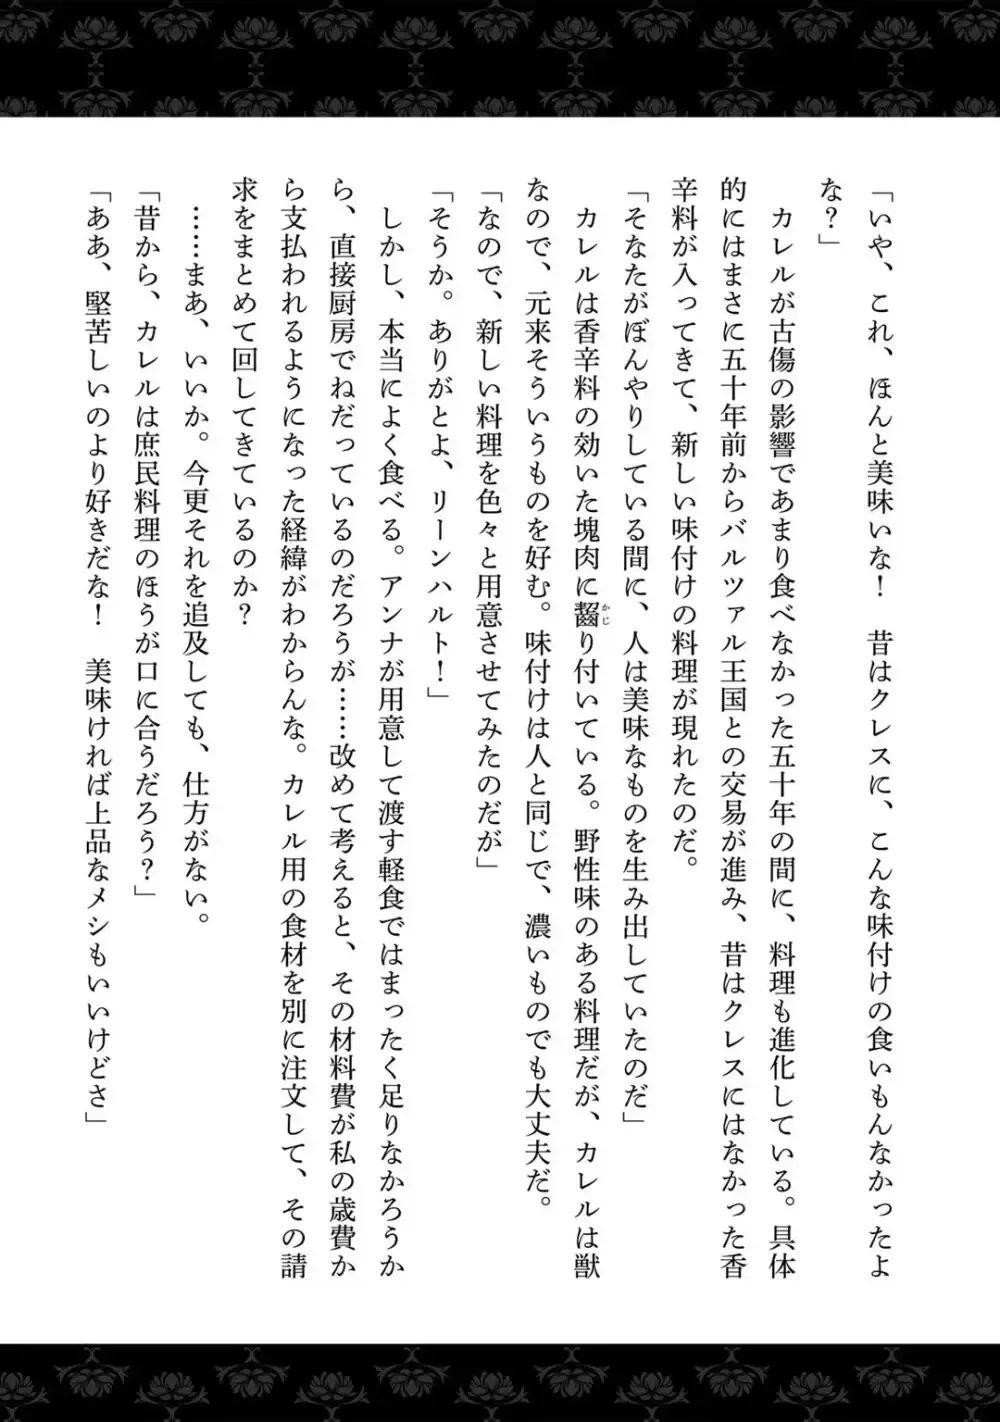 「いや、これ、ほんと美味いな！　昔はクレスに、こんな味付けの食いもんなかったよ
な？」
　カレルが古傷の影響であまり食べなかった五十年の間に、料理も進化している。具体
的にはまさに五十年前からバルツァル王国との交易が進み、昔はクレスにはなかった香
辛料が入ってきて、新しい味付けの料理が現れたのだ。
「そなたがぼんやりしている間に、人は美味なものを生み出していたのだ」
　カレルは香辛料の効いた塊肉に齧り付いている。野性味のある料理だが、カレルは獣
なので、元来そういうものを好む。味付けは人と同じで、濃いものでも大丈夫だ。
「なので、新しい料理を色々と用意させてみたのだが」
「そうか。ありがとよ、リーンハルト！」
　しかし、本当によく食べる。アンナが用意して渡す軽食ではまったく足りなかろうか
ら、直接厨房でねだっているのだろうが……改めて考えると、その材料費が私の歳費か
ら支払われるようになった経緯がわからんな。カレル用の食材を別に注文して、その請
求をまとめて回してきているのか？
　……まあ、いいか。今更それを追及しても、仕方がない。
「昔から、カレルは庶民料理のほうが口に合うだろう？」
「ああ、堅苦しいのより好きだな！　美味ければ上品なメシもいいけどさ」
かじ